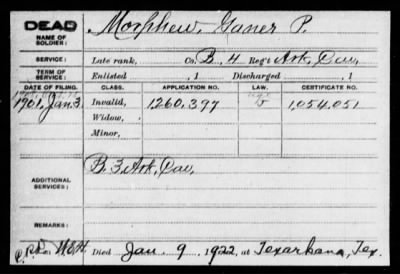 DEAD
NAME OF SOLDIER: Morphew, Ganer P.
SERVICE: Late rank, Co. B, 4 Reg't Ark. Cav.
TERM OF SERVICE: Enlisted , 1 Discharged , 1
DATE OF FILING. CLASS. APPLICATION NO. CERTIFICATE NO.
1901, Jan. 3. Invalid, 1260,397 1,054,051
Widow,
Minor,
ADDITIONAL SERVICES: B. 3 Ark. Cav.
REMARKS:
Died Jan. 9, 1922, at Texarkana, Tex.